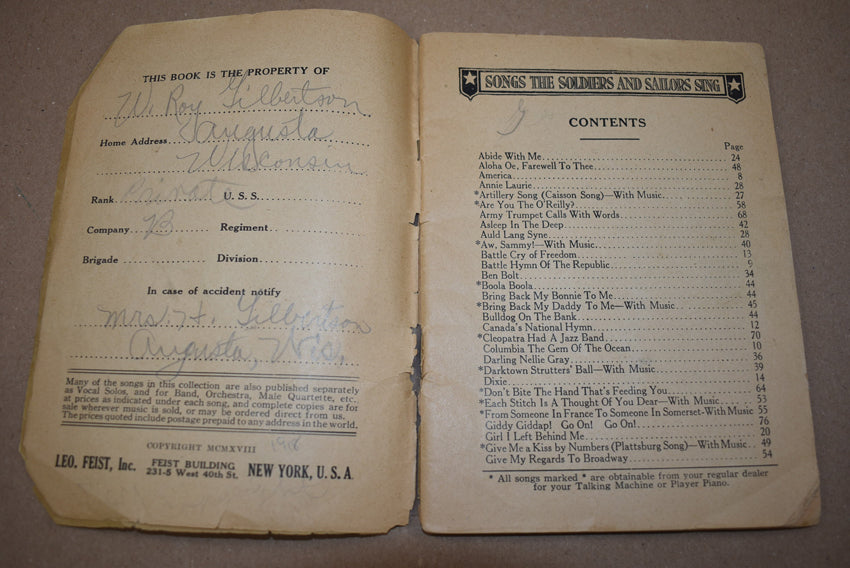 THIS BOOK IS THE PROPERTY OF
W. Roy Gilbertson
Home Address Augusta
Wisconsin
Rank Private U. S. S.
Company B Regiment
Brigade Division
In case of accident notify
Mrs. H. Gilbertson
Augusta, Wis.
Many of the songs in this collection are also published separately
as Vocal Solos, and for Band, Orchestra, Male Quartette, etc.,
at prices as indicated under each song, and complete copies are for
sale wherever music is sold, or may be ordered direct from us.
The prices quoted include postage prepaid to any address in the world.
COPYRIGHT MCMXVIII 1918
LEO. FEIST, Inc. FEIST BUILDING 231-5 West 40th St. NEW YORK, U. S. A.
SONGS THE SOLDIERS AND SAILORS SING
CONTENTS
Page
Abide With Me 24
Aloha Oe, Farewell To Thee 48
America 8
Annie Laurie 28
*Artillery Song (Caisson Song)—With Music 27
*Are You The O'Reilly? 58
Army Trumpet Calls With Words 68
Asleep In The Deep 42
Auld Lang Syne 28
*Aw, Sammy!—With Music 40
Battle Cry of Freedom 13
Battle Hymn Of The Republic 9
Ben Bolt 34
*Boola Boola 44
Bring Back My Bonnie To Me 44
*Bring Back My Daddy To Me—With Music 45
Bulldog On The Bank 44
Canada's National Hymn 12
*Cleopatra Had A Jazz Band 70
Columbia The Gem Of The Ocean 10
Darling Nellie Gray 36
*Darktown Strutters' Ball—With Music 39
Dixie 14
*Don't Bite The Hand That's Feeding You 64
*Each Stitch Is A Thought Of You Dear—With Music 53
*From Someone In France To Someone In Somerset-With Music 55
Giddy Giddap! Go On! Go On! 76
Girl I Left Behind Me 20
*Give Me a Kiss by Numbers (Plattsburg Song)—With Music 49
Give My Regards To Broadway 54
* All songs marked * are obtainable from your regular dealer
for your Talking Machine or Player Piano.